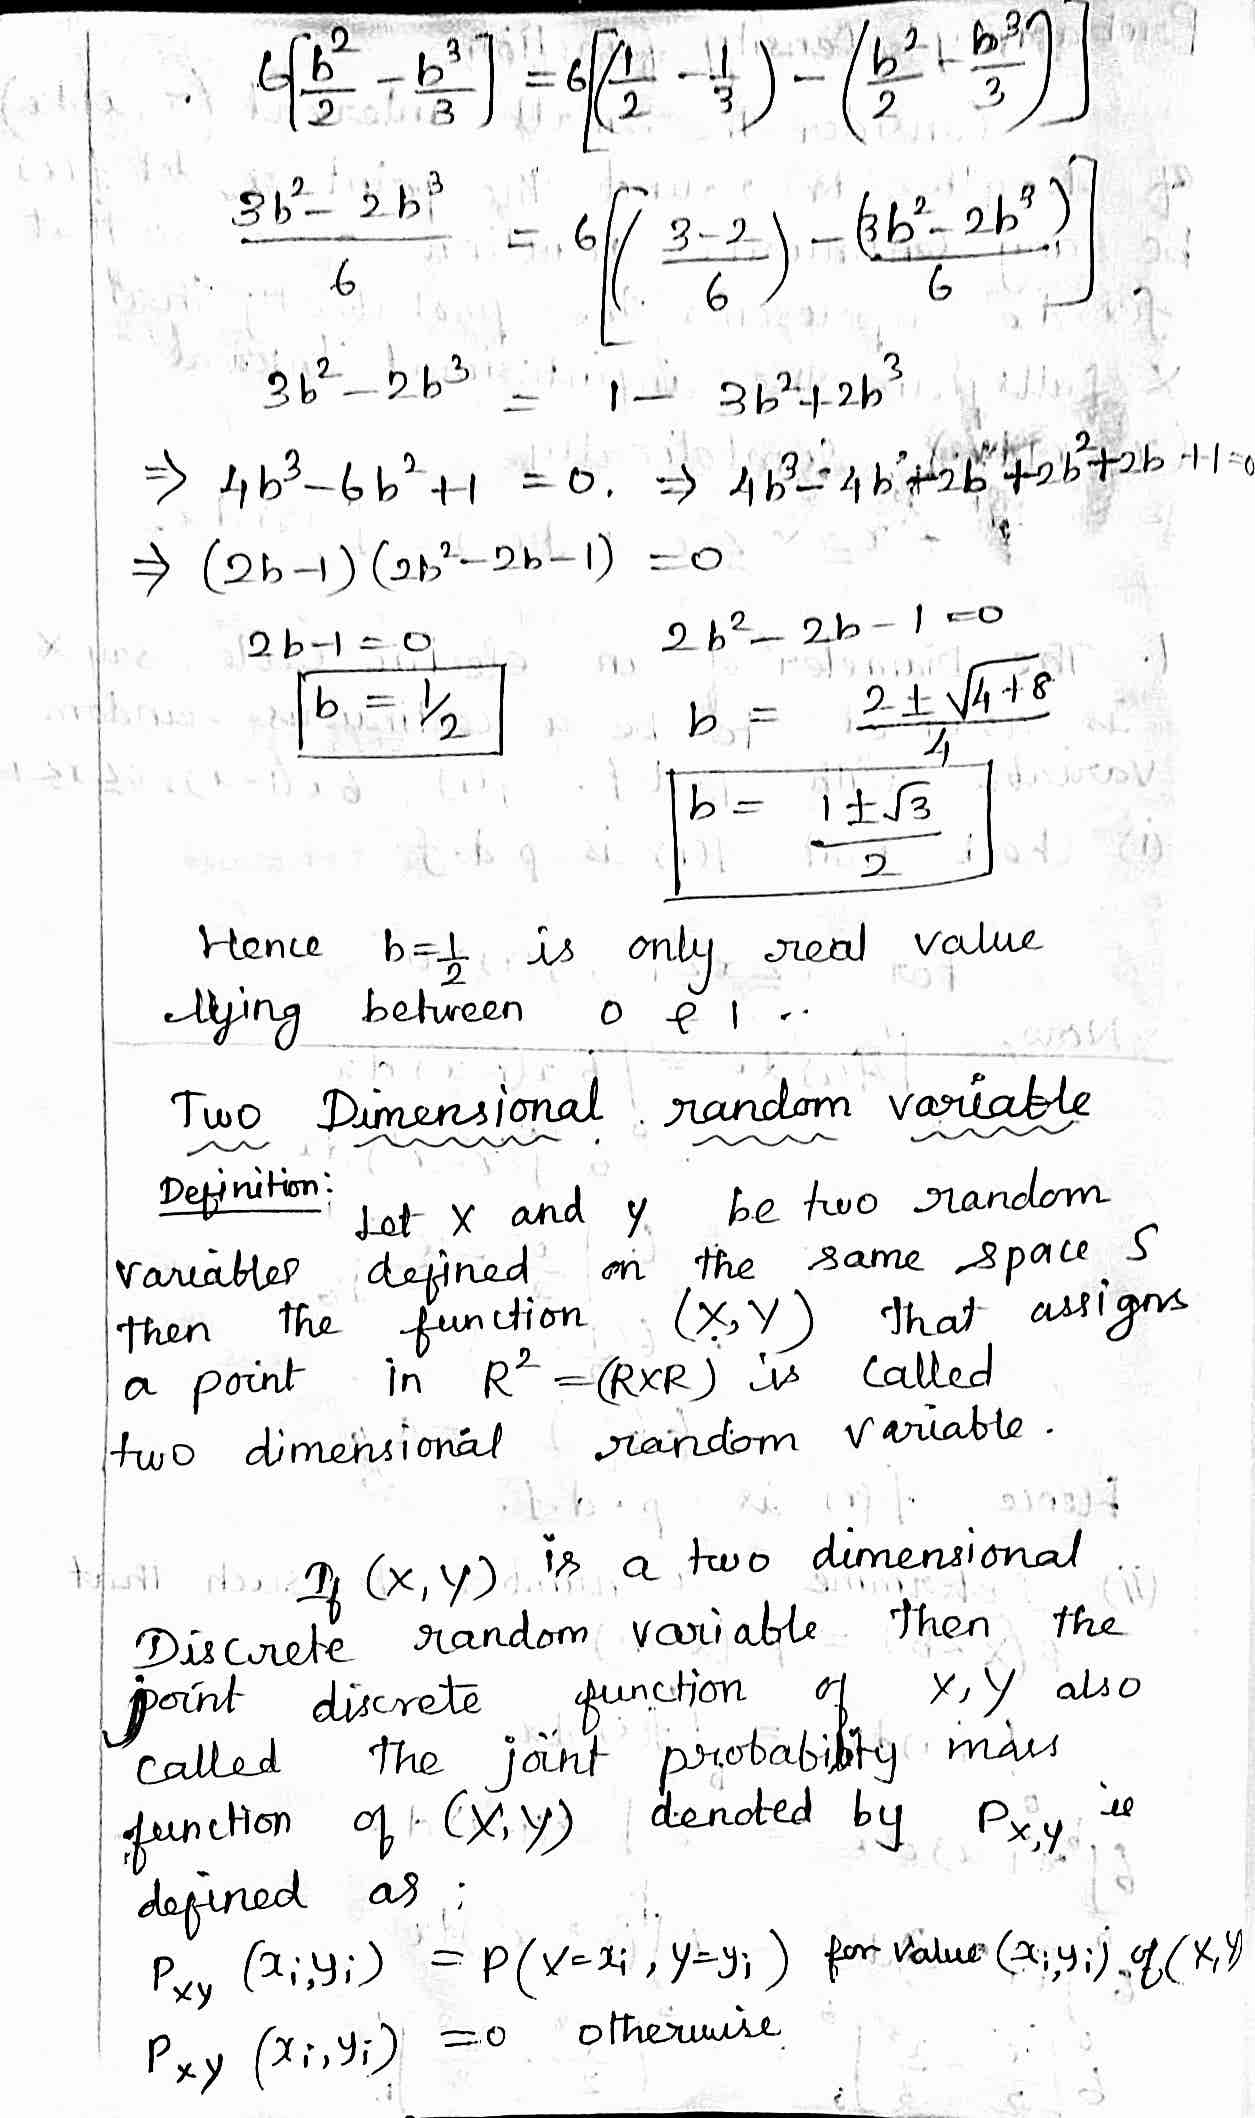 6[b²/2 - b³/3] = 6[(1/2 - 1/3) - (b²/2 + b³/3)]
3b² - 2b³/6 = 6[(3-2/6) - (3b² - 2b³)/6]
3b² - 2b³ = 1 - 3b² + 2b³
⇒ 4b³ - 6b² + 1 = 0. ⇒ 4b³ - 4b² + 2b + 2b² + 2b + 1 = 0
⇒ (2b-1)(2b² - 2b - 1) = 0
2b-1 = 0 2b² - 2b - 1 = 0
b = 1/2 b = 2 ± √4+8/4
b = 1 ± √3/2
Hence b=1/2 is only real value
lying between 0 & 1 ..
Two Dimensional random variable
Definition:
Let X and y be two random
variables defined on the same space S
then the function (X,Y) that assigns
a point in R² = (R×R) is called
two dimensional random variable.
If (X,Y) is a two dimensional
Discrete random variable Then the
joint discrete function of X,Y also
called the joint probability mass
function of (X,Y) denoted by P_X,Y is
defined as ;
P_XY (xi,yi) = P(X=xi, Y=yi) for value (xi,yi) of (X,Y
P_XY (xi,yi) = 0 otherwise